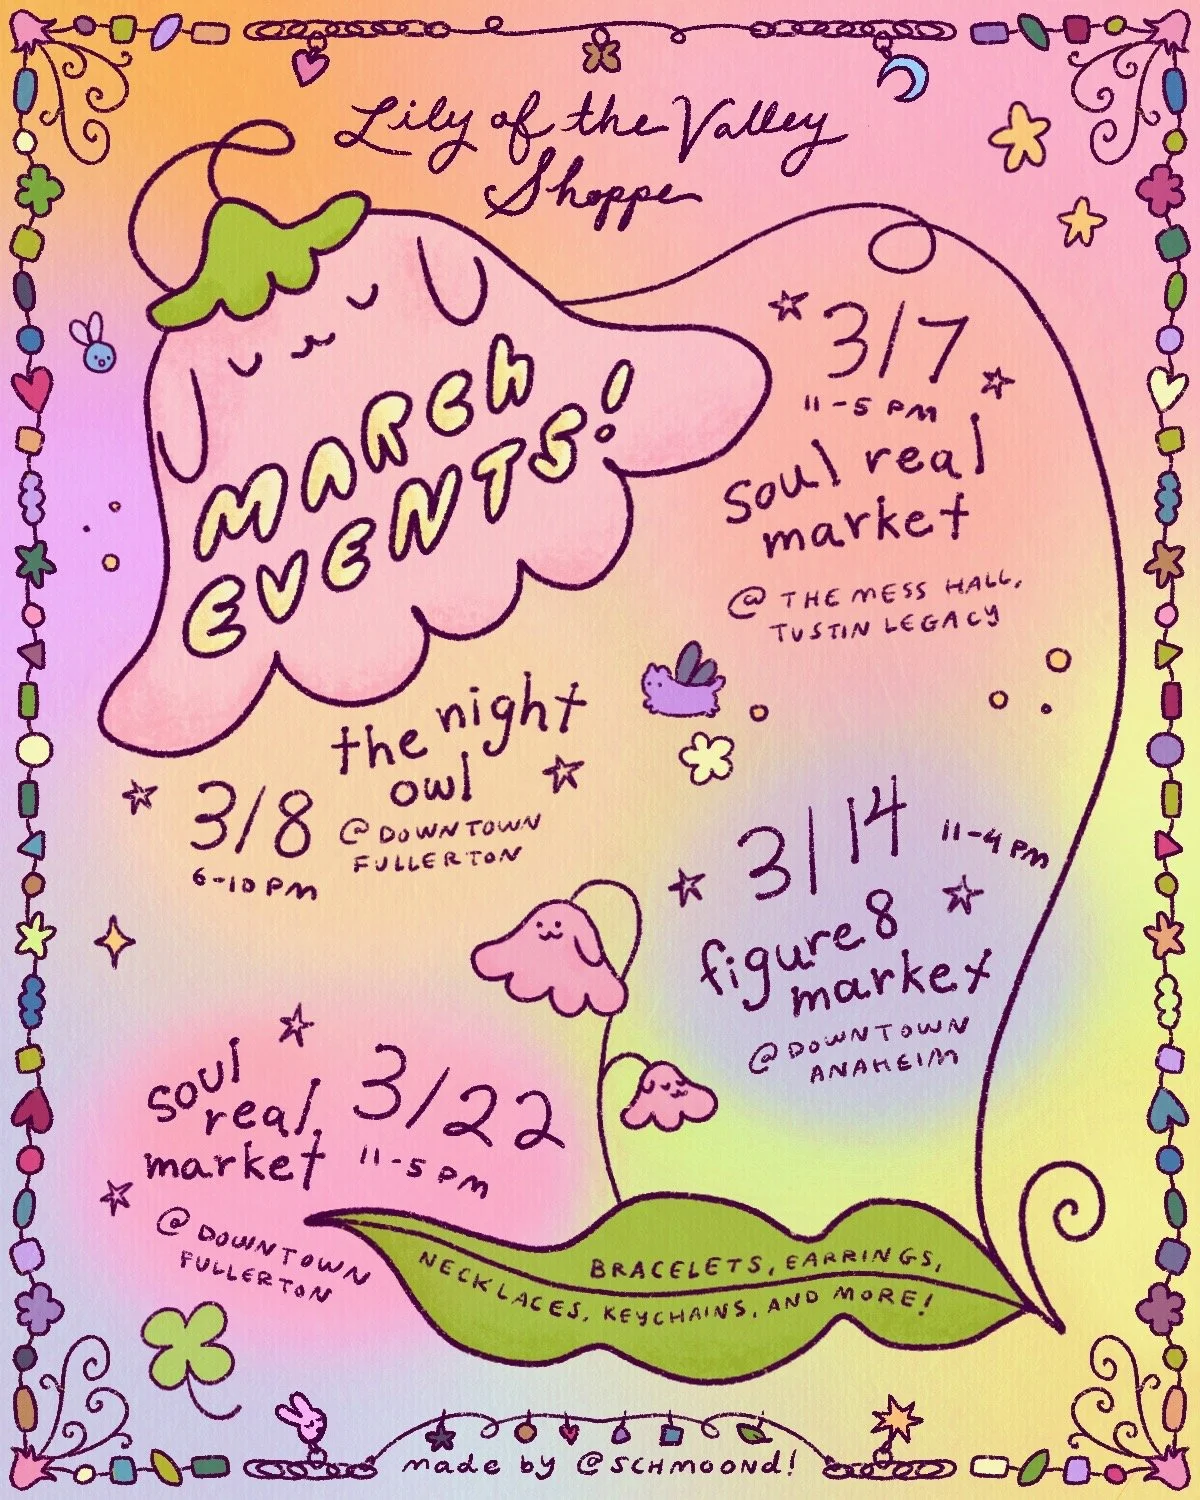 Lily of the Valley
Shoppe
MARCH
EVENTS!
3/7
11-5 PM
soul real
market
@ THE MESS HALL,
TUSTIN LEGACY
the night
owl
3/8
6-10 PM
@ DOWNTOWN
FULLERTON
3/14
11-4 PM
figure 8
market
@ DOWNTOWN
ANAHEIM
soul
real
market
3/22
11-5 PM
@ DOWNTOWN
FULLERTON
BRACELETS, EARRINGS,
NECKLACES, KEYCHAINS, AND MORE!
made by @SCHMOOND!